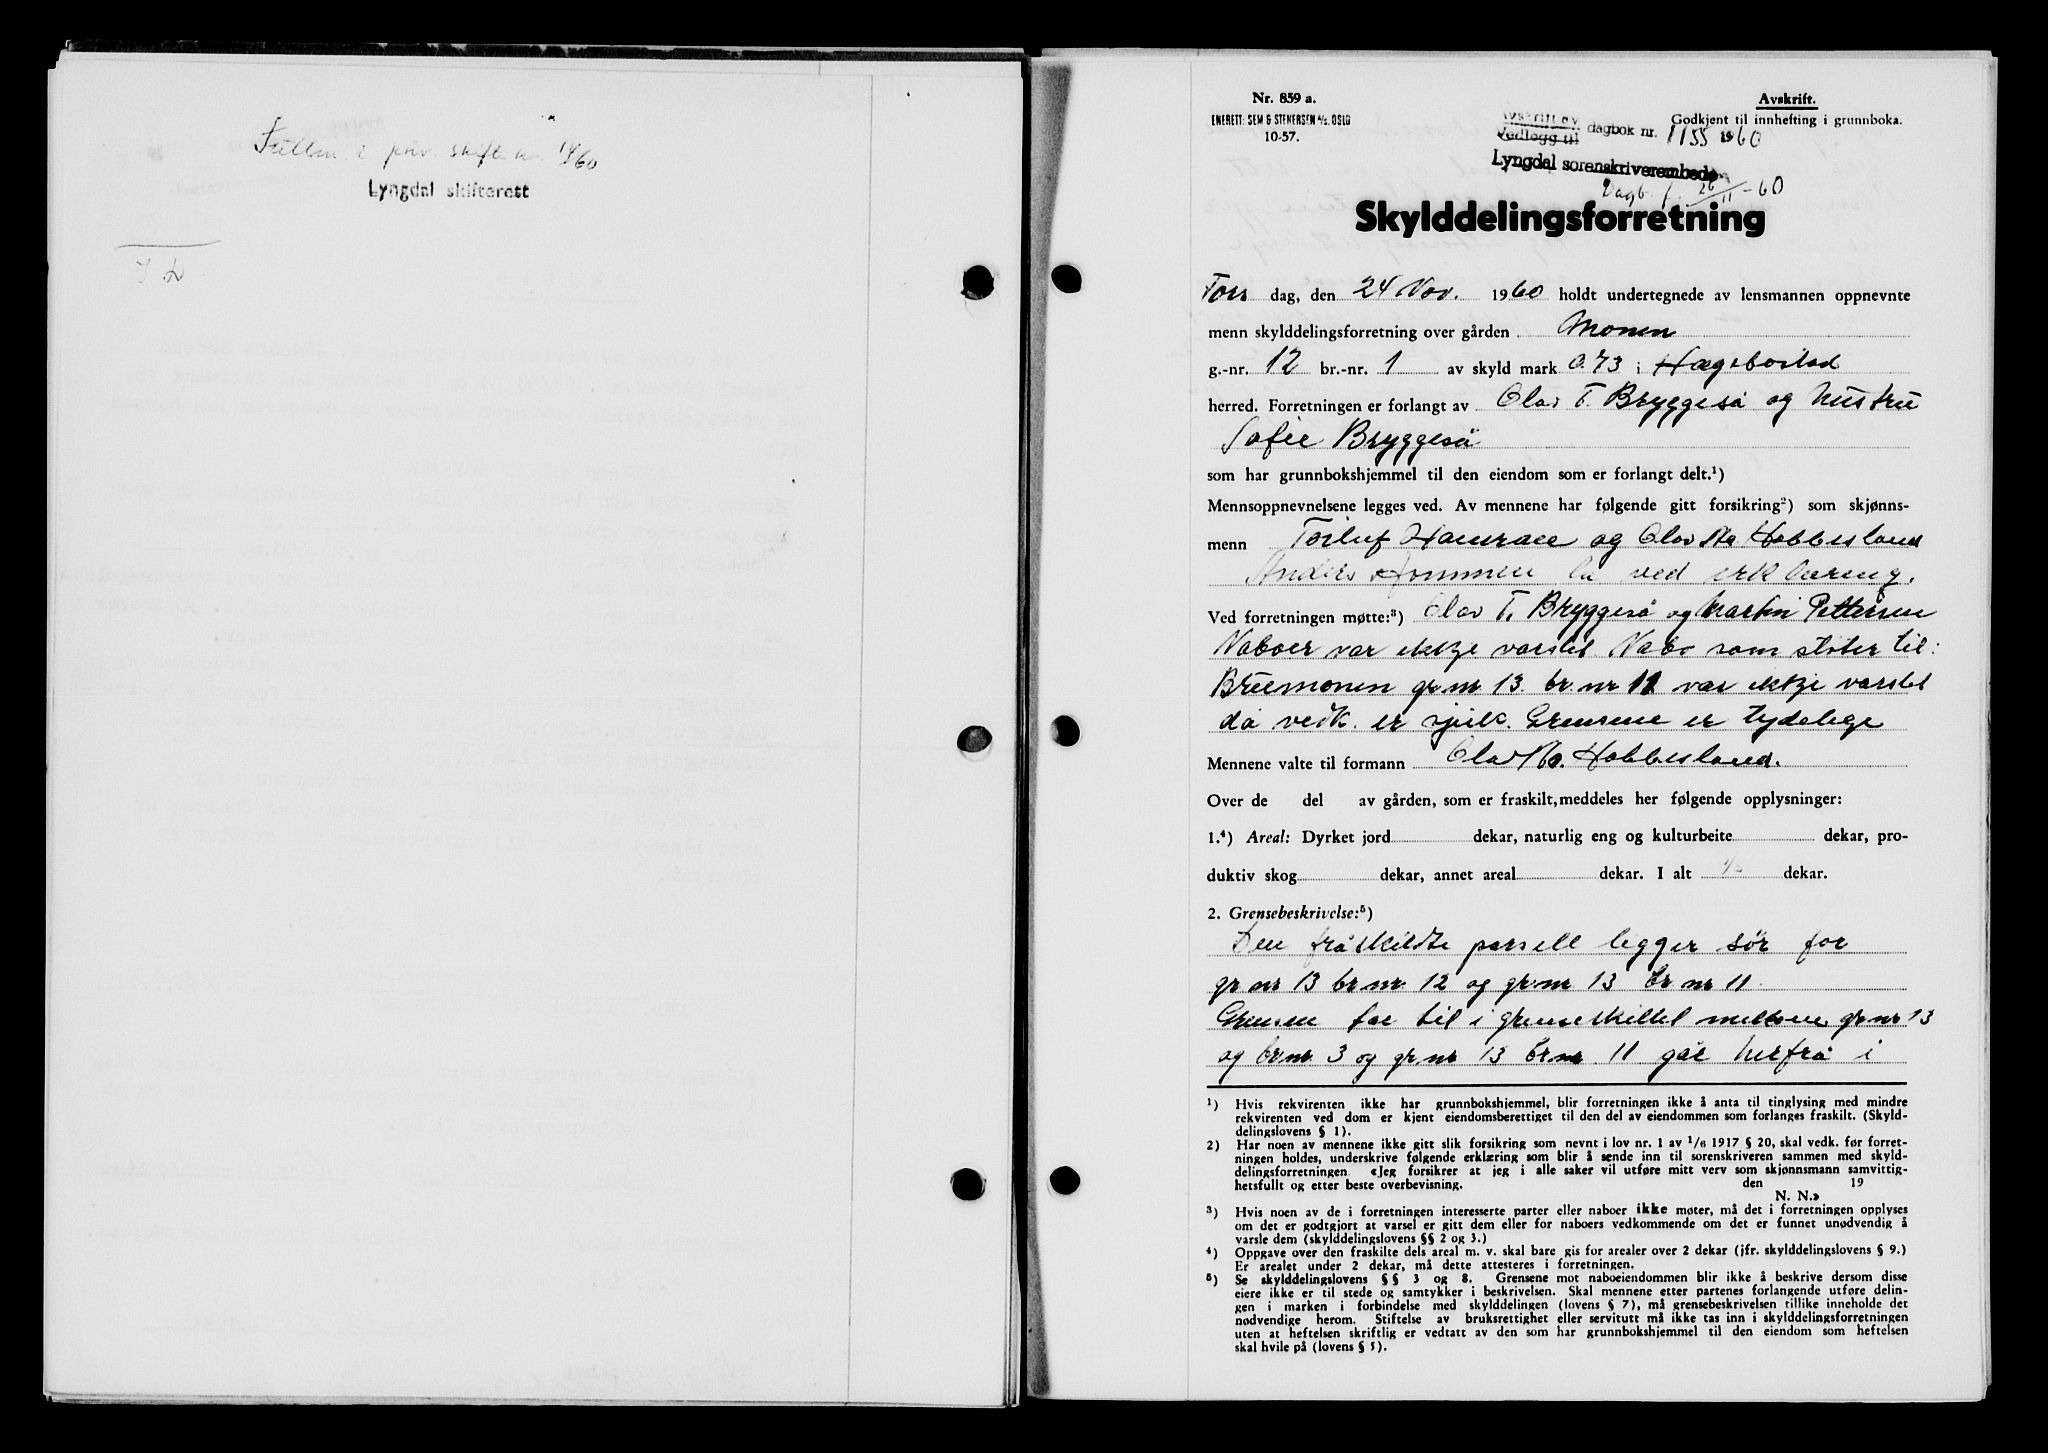 Fullm i priv. skifte nr. 14/60
Lyngdal skifterett
Nr. 859 a.
ENERETT: SEM & STENERSEN A/S. OSLO
10-57.
Avskrift.
Godkjent til innhefting i grunnboka.
Avskrift av
Vedlegg til dagbok nr. 1155 1960
Lyngdal sorenskriverembede
Dagb. f. 26/11-60
Skylddelingsforretning
Tors dag, den 24 Nov. 1960 holdt undertegnede av lensmannen oppnevnte
menn skylddelingsforretning over gården Monen
g.-nr. 12 br.-nr. 1 av skyld mark 0.73 i Hægebostad
herred. Forretningen er forlangt av Olav T. Bryggeså og hustru
Sofie Bryggeså
som har grunnbokshjemmel til den eiendom som er forlangt delt.¹)
Mennsoppnevnelsene legges ved. Av mennene har følgende gitt forsikring²) som skjønns-
menn Torluf og Olav Hobbesland
Anders Hommen la ved erklæring.
Ved forretningen møtte:³) Olav T. Bryggeså og Martin Pettersen
Naboer var ekkje varslet. Nabo som støter til:
Bruemonen gr.nr. 13. br.nr 11 var ekkje varslet
då vedk. er sjuk. Grensene er tydelege
Mennene valte til formann Olav Hobbesland.
Over de del av gården, som er fraskilt, meddeles her følgende opplysninger:
1.⁴) Areal: Dyrket jord dekar, naturlig eng og kulturbeite dekar, pro-
duktiv skog dekar, annet areal dekar. I alt dekar.
2. Grensebeskrivelse:⁵)
Den fråskildte parsell legger sør for
gr nr 13 br nr. 12 og gr nr 13 br nr 11
Grensen tar til i grenseskillet mellom gr nr 13
og br nr. 3 og gr. nr 13 br nr 11 går herfrå i
¹) Hvis rekvirenten ikke har grunnbokshjemmel, blir forretningen ikke å anta til tinglysing med mindre
rekvirenten ved dom er kjent eiendomsberettiget til den del av eiendommen som forlanges fraskilt. (Skyld-
delingslovens § 1).
2) Har noen av mennene ikke gitt slik forsikring som nevnt i lov nr. 1 av 1/6 1917 § 20, skal vedk. før forret-
ningen holdes, underskrive følgende erklæring som blir å sende inn til sorenskriveren sammen med skyld-
delingsforretningen «Jeg forsikrer at jeg i alle saker vil utføre mitt verv som skjønnsmann samvittig-
hetsfullt og etter beste overbevisning. den 19
N. N.»
³) Hvis noen av de i forretningen interesserte parter eller naboer ikke møter, må det i forretningen opplyses
om det er godtgjort at varsel er gitt dem eller for naboers vedkommende om det er funnet unødvendig å
varsle dem (skylddelingslovens §§ 2 og 3.)
⁴) Oppgave over den fraskilte dels areal m. v. skal bare gis for arealer over 2 dekar (jfr. skylddelingslovens § 9.)
Er arealet under 2 dekar, må dette attesteres i forretningen.
⁵) Se skylddelingslovens § § 3 og 8. Grensene mot naboeiendommen blir ikke å beskrive dersom disse
eiere ikke er til stede og samtykker i beskrivelsen. Skal mennene etter partenes forlangende utføre delin-
gen i marken i forbindelse med skylddelingen (lovens § 7), må grensebeskrivelsen tillike inneholde det
nødvendige herom. Stiftelse av bruksrettighet eller servitutt må ikke tas inn i skylddelingsforretningen
uten at heftelsen skriftlig er vedtatt av den som har grunnbokshjemmel til den eiendom som heftelsen
skal hvile på (lovens § 5).